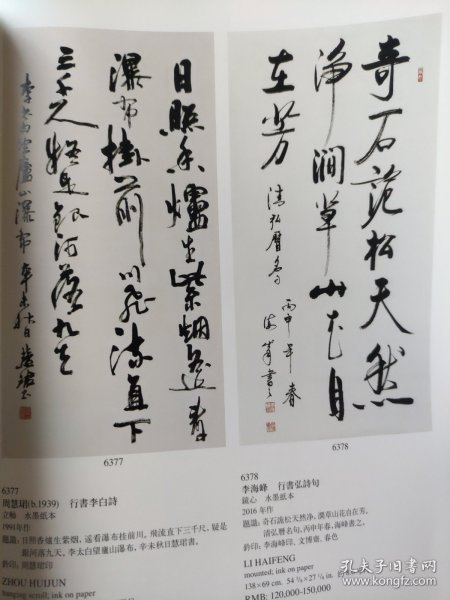 日照香爐生紫烟遥看
瀑布掛前川飛流直下
三千尺疑是銀河落九天
李太白望廬山瀑布辛未秋日慧珺書
奇石詭松天然
净澗草山花自
在芳
清弘曆句
丙申年春
海峰書之
6377
6378
6377
周慧珺(b.1939) 行書李白詩
立軸 水墨紙本
1991年作
題識：日照香爐生紫烟，遥看瀑布挂前川，飛流直下三千尺，疑是
銀河落九天，李太白望廬山瀑布，辛未秋日慧珺書，
鈐印：周慧珺印
ZHOU HUIJUN
hanging scroll, ink on paper
6378
李海峰 行書弘詩句
鏡心 水墨紙本
2016 年作
題識：奇石詭松天然净，澗草山花自在芳，
清弘曆名句，丙申年春，海峰書之，
鈐印：李海峰印、文博齋、春色
LI HAIFENG
mounted; ink on paper
138×69 cm. 54 3/8×27 1/8 in.
RMB: 120,000-150,000
孔夫子旧书网